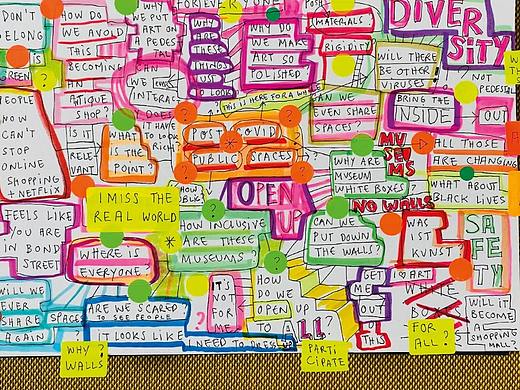 DON'T
BELONG
IS
GREEN
?
HOW DO
WE AVOID
THIS
BECOMING
AN
ANTIQUE
SHOP?
WHY
WE PUT
ART ON
A PEDES
TAL
CAN
WE
INTERACT
DOES
IT HAVE
TO LOOK
RICH?
FOR EVERYONE?
WHY
ARE
THESE
THINGS
JUST
TO LOOK
WHY DO
WE MAKE
ART SO
POLISHED
MATERIALS
RIGIDITY
DIVER
SITY
WILL THERE
BE OTHER
VIRUSES
NOT
PEDESTAL
BRING THE
INSIDE
OUT
THIS IS HERE FOR A WHILE
CAN WE
EVEN SHARE
SPACES?
PEOPLE
NOW
CAN'T
STOP
ONLINE
SHOPPING
+ NETFLIX
IS IT
RELE
VANT
WHAT
IS THE
POINT?
POST COVID
PUBLIC SPACES
MU
SEU
MS
WHY ARE
MUSEUM
WHITE BOXES
NO WALLS
ALL THOSE
ARE CHANGING
WHAT ABOUT
BLACK LIVES
OPEN
UP
I MISS THE
REAL WORLD
FEELS LIKE
YOU ARE
IN BOND
STREET
WHERE IS
EVERYONE?
HOW INCLUSIVE
ARE THESE
MUSEUMS?
CAN WE
PUT DOWN
THE WALLS?
WAS
IST
KUNST?
SA
FE
TY
WILL WE
EVER
SHARE SPACES
AGAIN
ARE WE SCARED
TO SEE PEOPLE
IT LOOKS LIKE
I NEED TO DRESS UP
IT'S
NOT
FOR
ME
?
HOW
DO WE
OPEN UP
TO
ALL?
GET
ME
OUT
OF
THIS
I ♡ ART
WHITE
BOX
FOR
ALL?
WILL IT
BECOME
A
SHOPPING
MALL?
WHY?
WALLS
PARTI
CIPATE